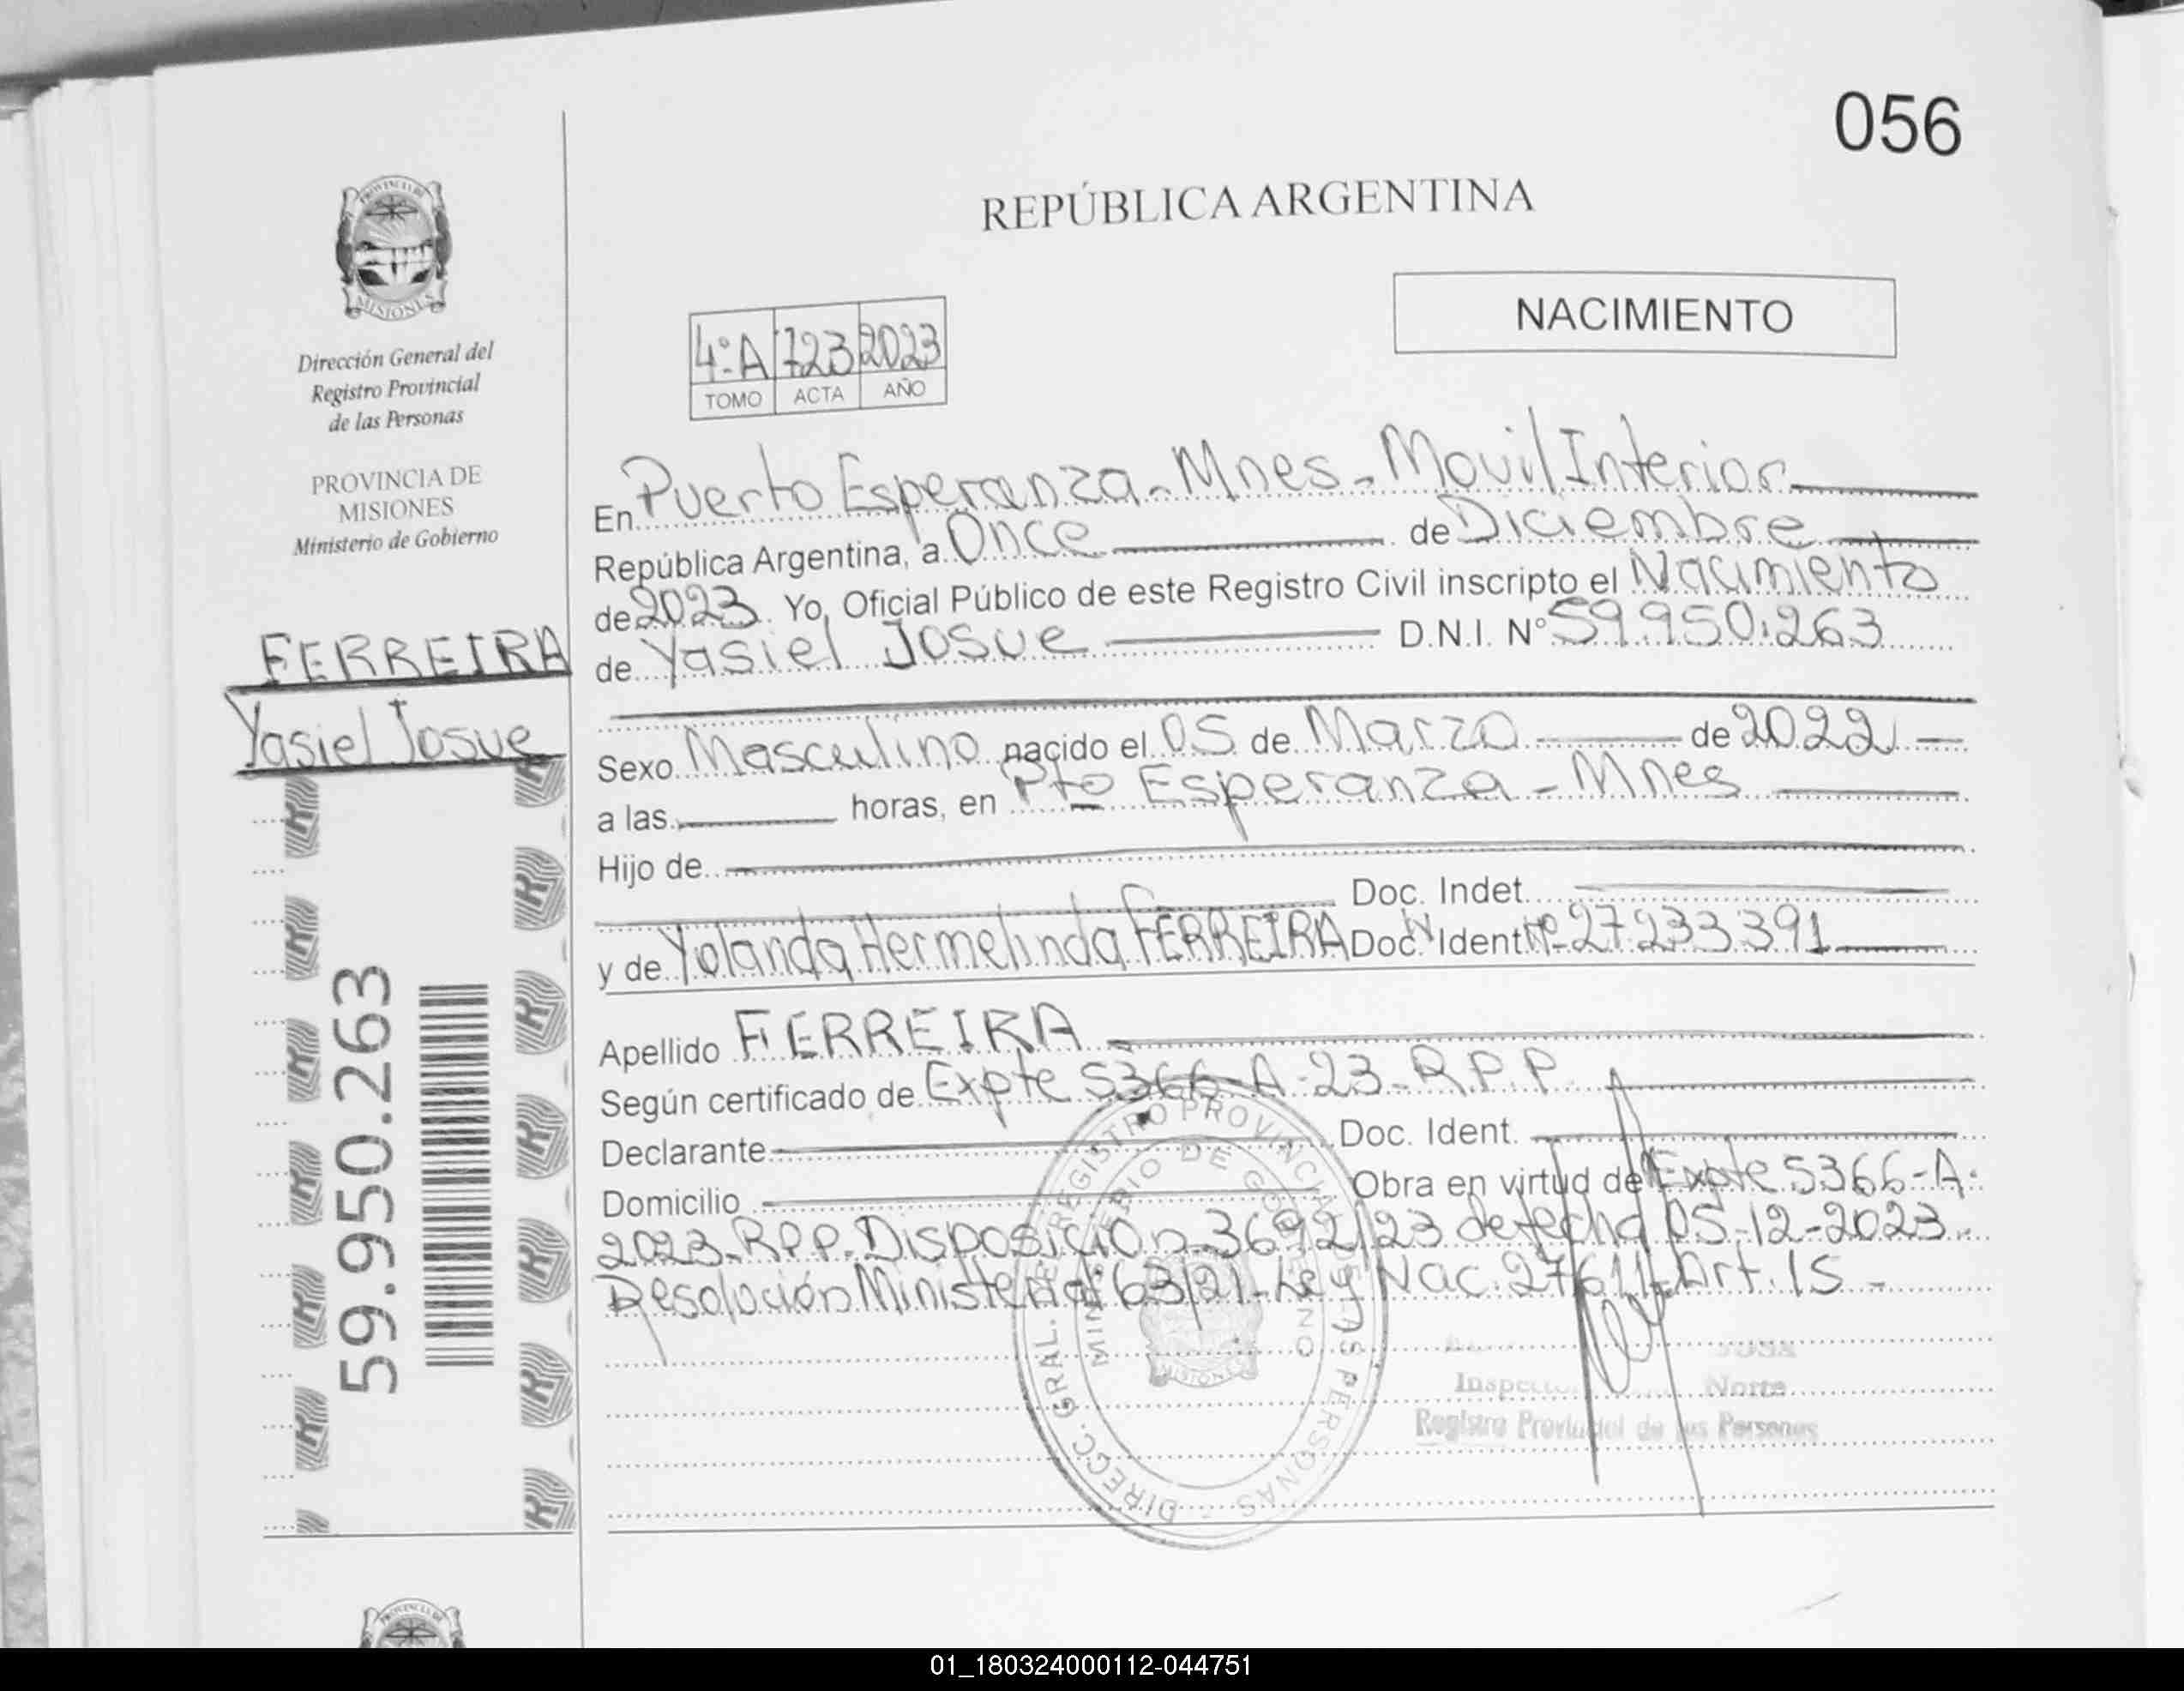 056
REPÚBLICA ARGENTINA
NACIMIENTO
4º A 723 2023
TOMO ACTA AÑO
PROVINCIA DE
MISIONES
Dirección General del
Registro Provincial
de las Personas
PROVINCIA DE
MISIONES
Ministerio de Gobierno
FERREIRA
Yasiel Josue
59.950.263
En Puerto Esperanza - Mnes - Movil Interior
República Argentina, a Once de Diciembre
de 2023. Yo, Oficial Público de este Registro Civil inscripto el Nacimiento
de Yasiel Josue D.N.I. Nº 59.950.263
Sexo Masculino nacido el 05 de Marzo de 2022
a las horas, en Pto Esperanza - Mnes
Hijo de
Doc. Indet.
y de Yolanda Hermelinda FERREIRA Doc. Ident. Nº 27233391
Apellido FERREIRA
Según certificado de Expte 5366-A-23-R.P.P.
Declarante Doc. Ident.
Domicilio Obra en virtud de Expte 5366-A-
2023-R.P.P. Disposición 3692/23 de fecha 05-12-2023
Resolución Ministerial 63/21 - Ley Nac. 27611 - Art. 15 -
DIRECC. GRAL. DE REGISTRO PROVINCIAL DE LAS PERSONAS
MINISTERIO DE GOBIERNO
MISIONES
Norte
Registro Provincial de las Personas
01_180324000112-044751